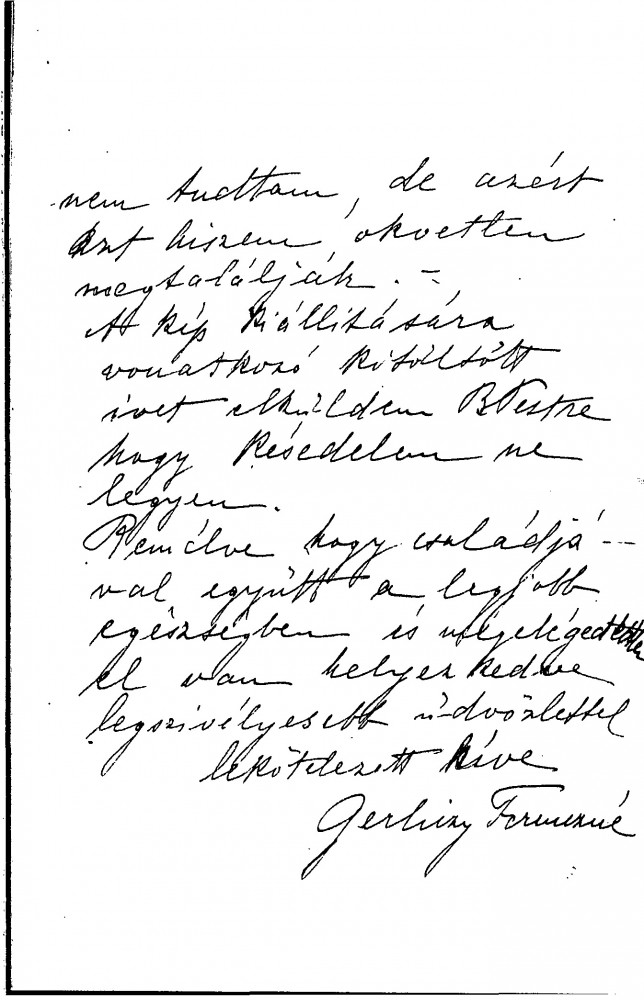 nem tudtam, de azért
azt hiszem, okvetlen
megtalálják. –
A kép kiállitására
vonatkozó kitöltött
ivet elküldem BPestre
hogy késedelem ne
legyen.
Remélve hogy családjá-
val együtt a legjobb
egészségben és
el van helyezkedve
legszivélyesebb üdvözlettel
lekötelezett hive
Ferenczné